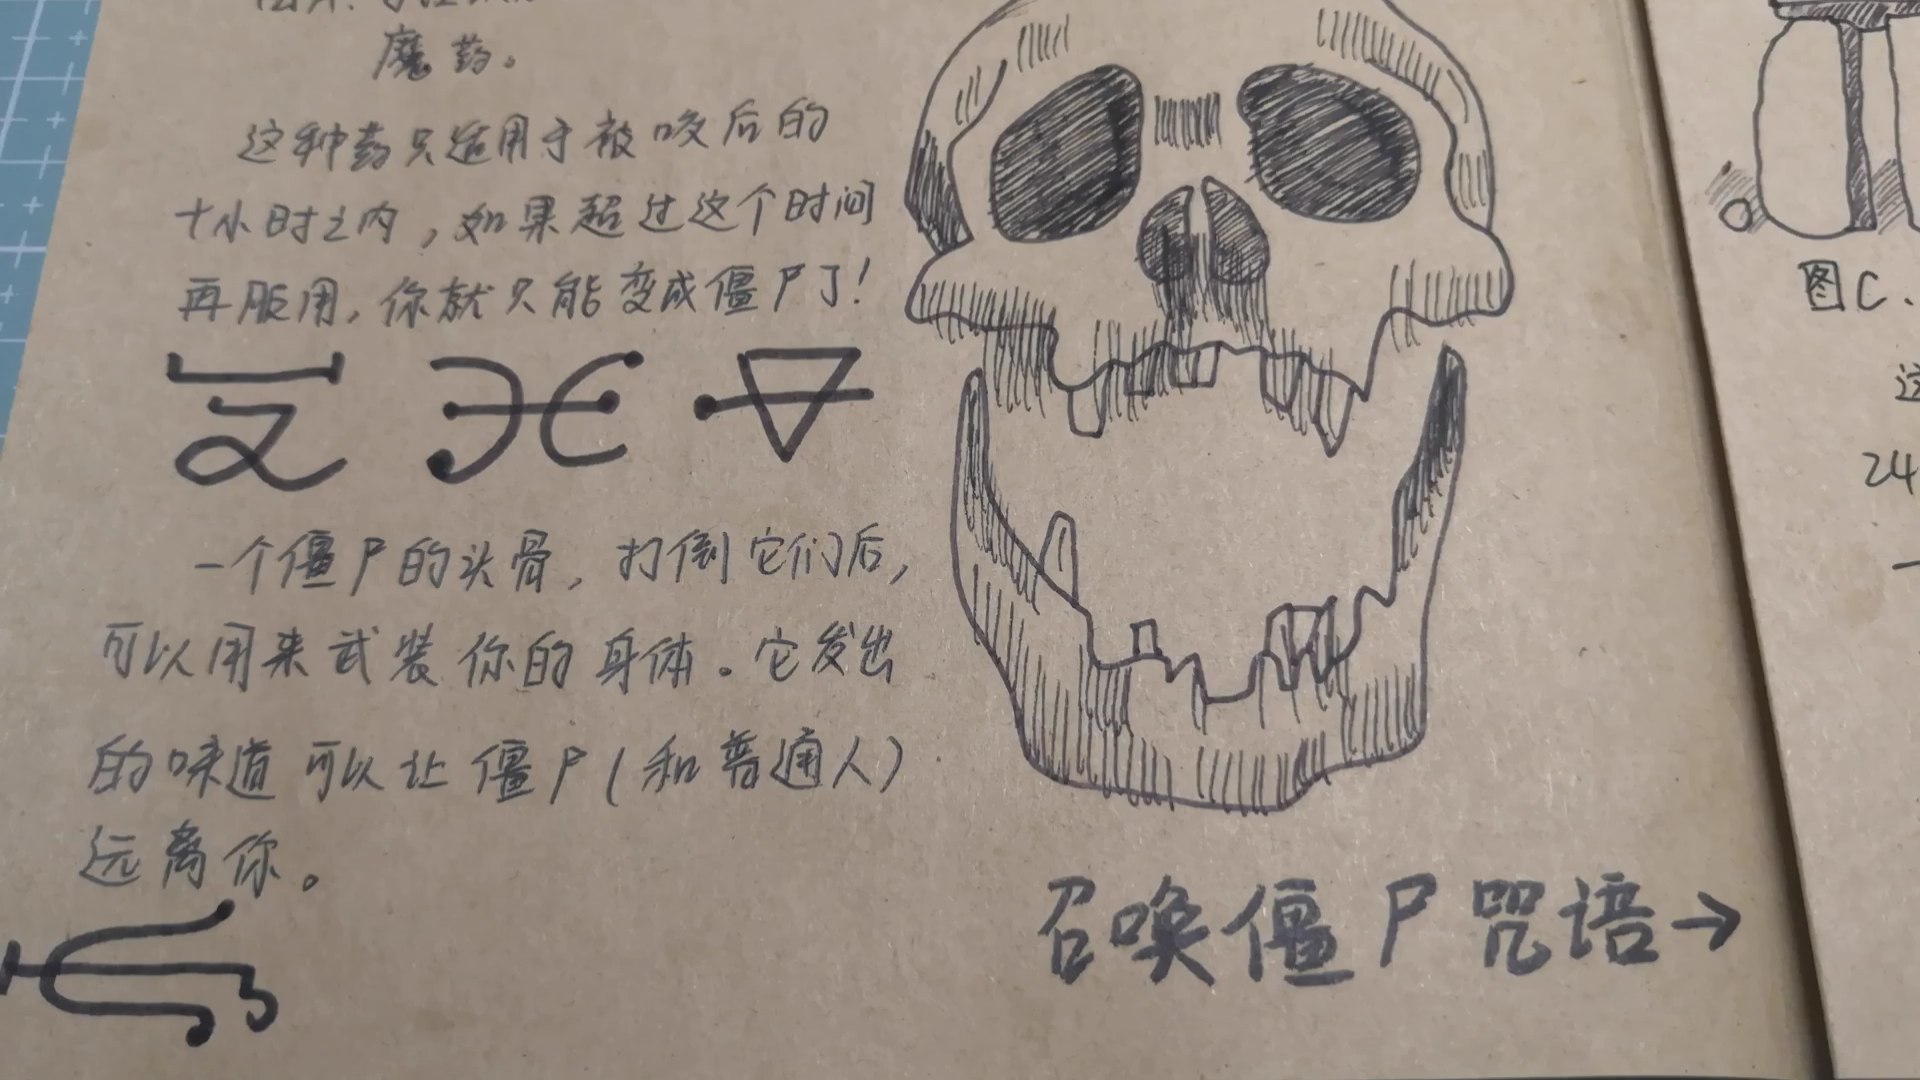 魔药。
这种药只适用于被咬后的
十小时之内，如果超过这个时间
再服用，你就只能变成僵尸了！
一个僵尸的头骨，打倒它们后，
可以用来武装你的身体。它发出
的味道可以让僵尸（和普通人）
远离你。
召唤僵尸咒语→
图C.
这
24
一